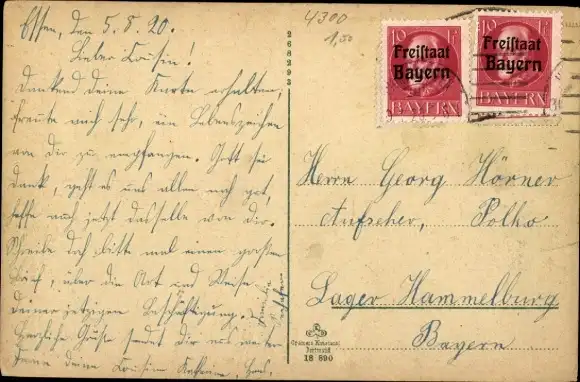 Essen, den 5.8.20.
Lieber Cousin!
Dankend deine Karte erhalten,
freute mich sehr, ein Lebenszeichen
von dir zu empfangen. Gott sei
dank, geht es uns allen noch gut,
hoffe auch jetzt dasselbe von dir.
Schreibe doch bitte mal einen großen
Brief, über die Art und Weise
deiner jetzigen Beschäftigung.
Herzliche Grüße sendet dir aus weiter
Ferne deine Cousine
4300
1,50
268293
10 Pf
Freistaat
Bayern
BAYERN
10 Pf
Freistaat
Bayern
BAYERN
Herrn Georg Hörner
Aufseher, Polko
Lager Hammelburg
Bayern
Dortmund
18 890